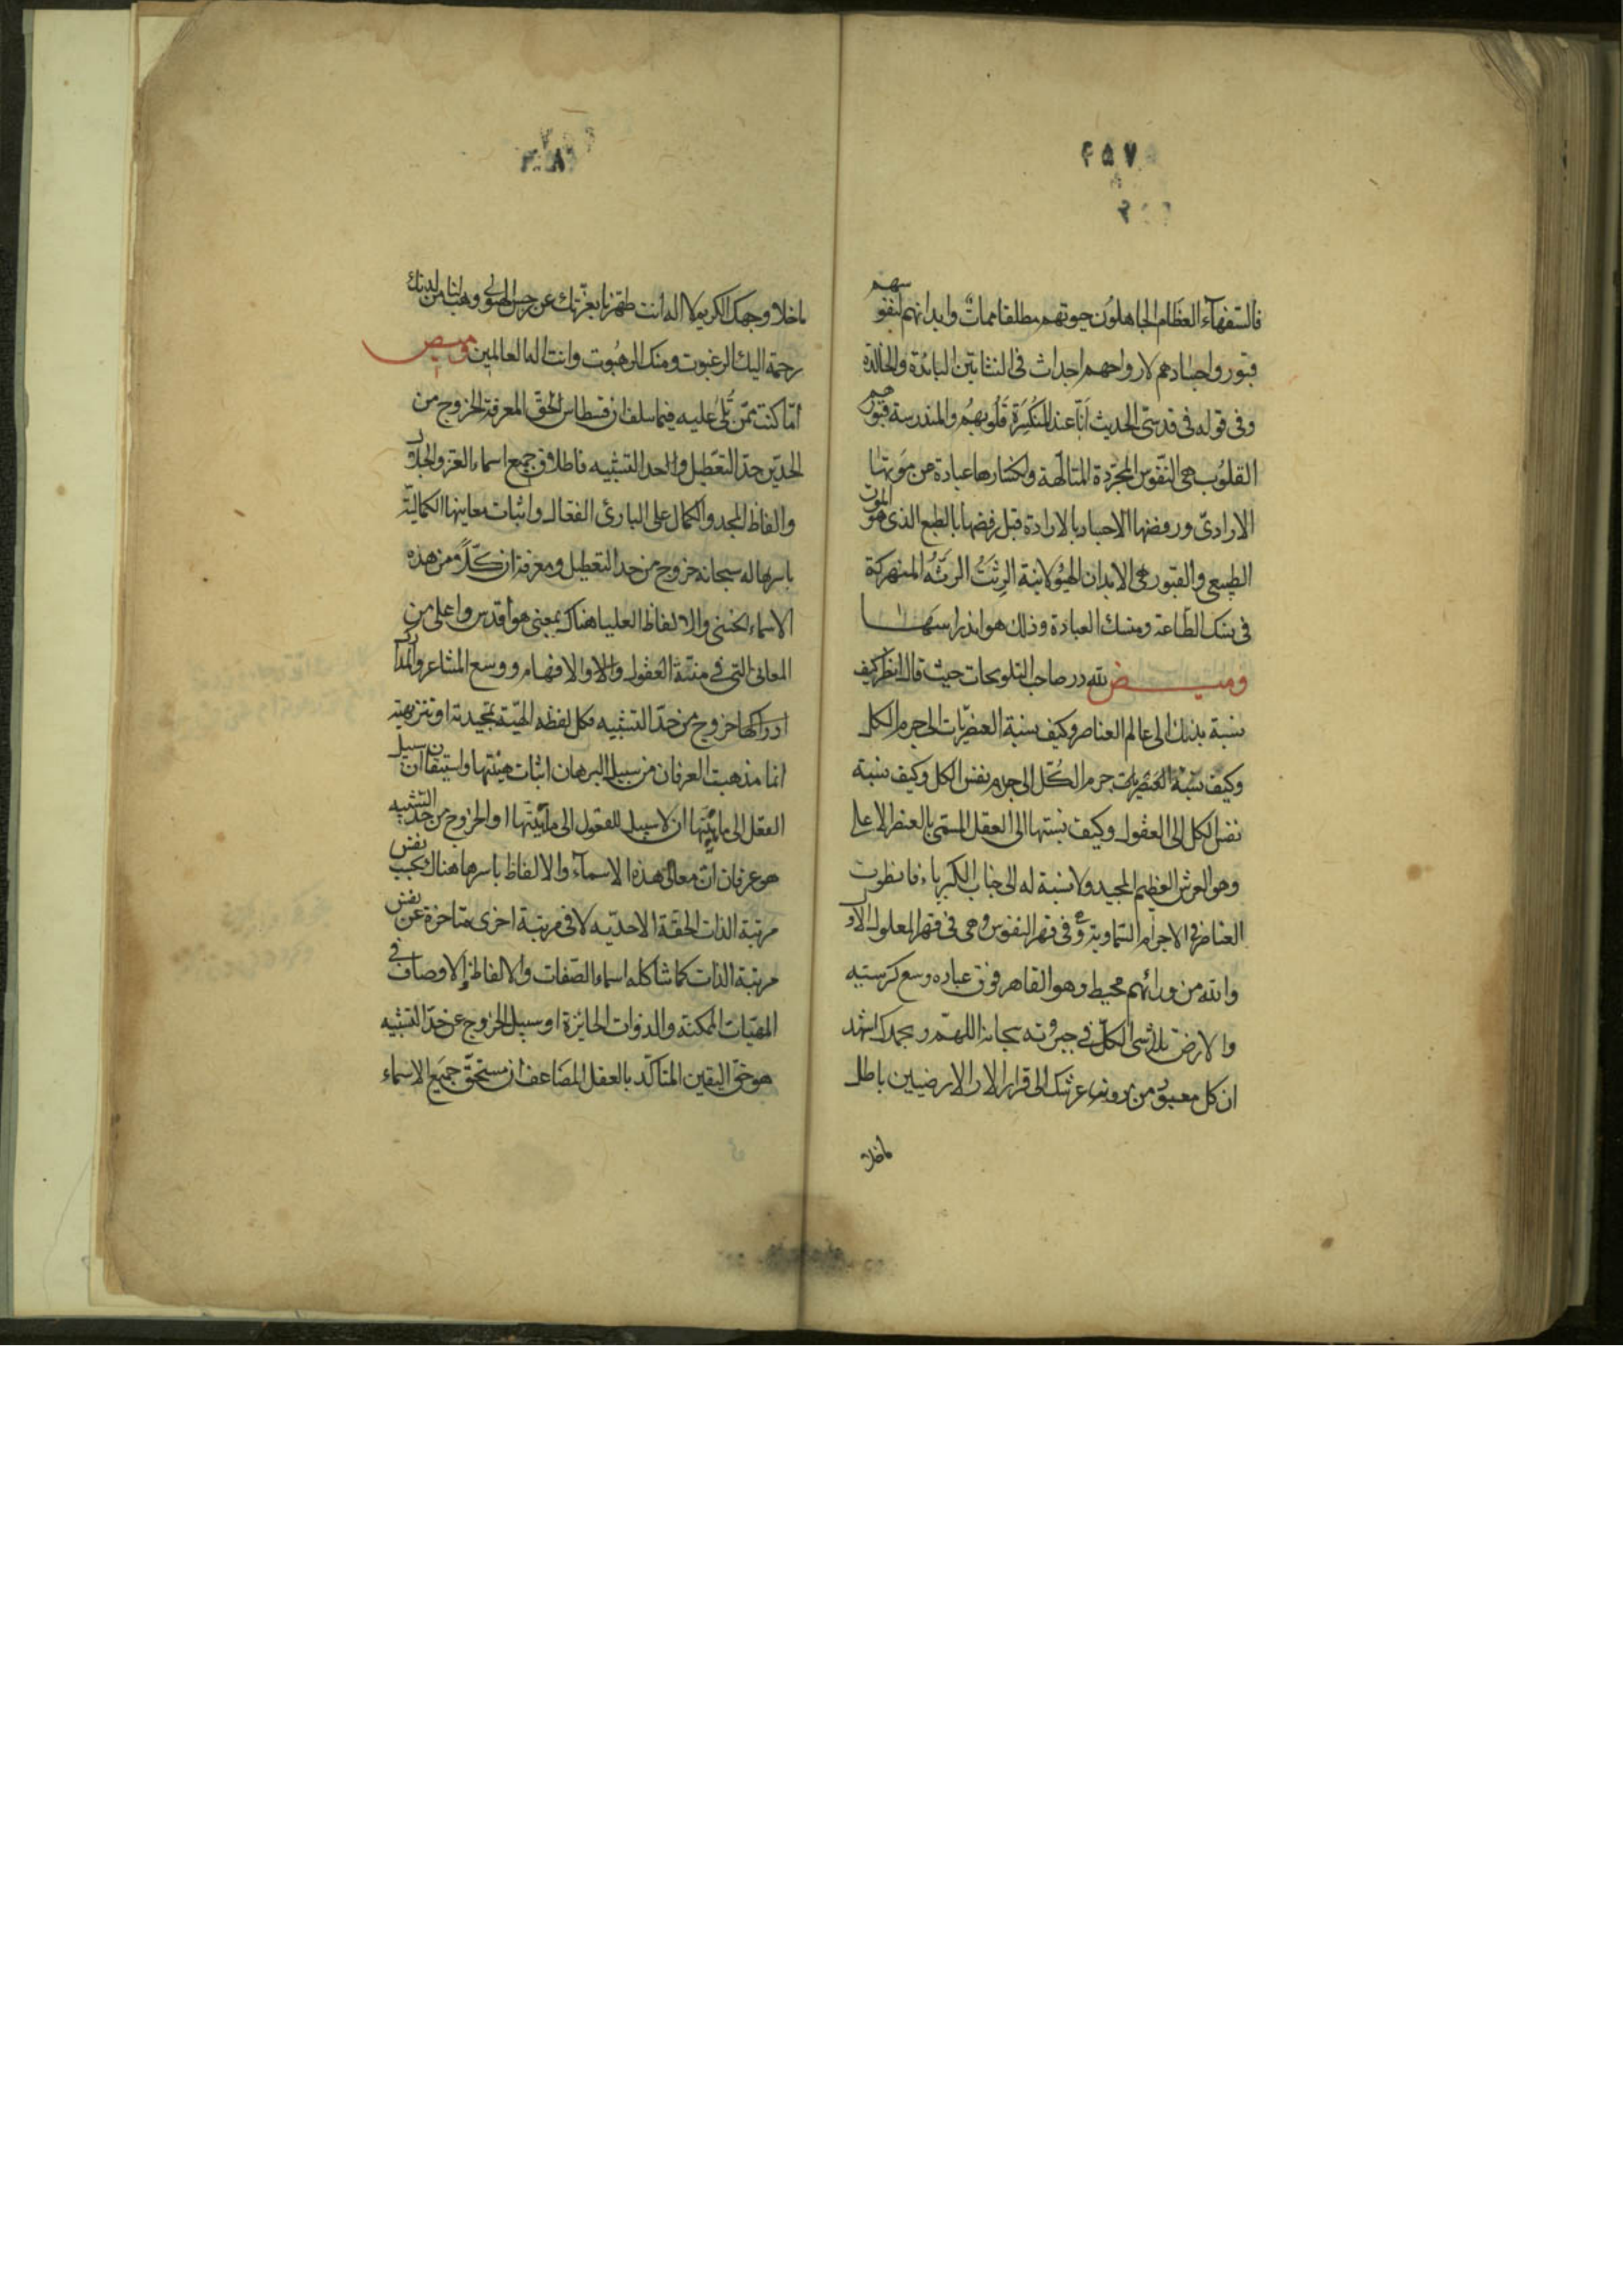 فالسفهآء العظام الجاهلون حيوتهم مطلقا ممات وابدانهم لنفوسهم
قبور واجسادهم لارواحهم اجداث فى النشاتين البائدة والخالدة
وفى قوله فى قدسى الحديث انا عند المنكسرة قلوبهم والمندرسة قبورهم
القلوب هى النفوس المجردة المتالهة وانكسارها عبارة عن موتها
الارادى ورفضها الاجساد بالارادة قبل رفضها بالطبع الذى هو الموت
الطبيعى والقبور هى الابدان الهيولانية الرثة المنهركة
فى نسك الطاعة ومنسك العبادة وذلك هو اندراسها
وميض لله در صاحب التلويحات حيث قال انظر كيف
نسبة بدنك الى عالم العناصر وكيف نسبة العنصريات الى جرم الكل
وكيف نسبة جرم الكل الى جرم نفس الكل وكيف نسبة
نفس الكل الى العقول وكيف نسبتها الى العقل المسمى بالعنصر الاعلى
وهو العرش العظيم المجيد ولا نسبة له الى جناب الكبرياء فانطوت
العناصر فى الاجرام السماوية وفى قهر النفوس وهى فى قهر المعلول الاول
والله من ورائهم محيط وهو القاهر فوق عباده وسع كرسيه
والارض تلاشى الكل فى جبروته سبحانه اللهم وبحمدك اشهد
ان كل معبود من دون عرشك الى قرار الارضيين باطل
ماخلا
ماخلا وجهك الكريم لا اله الا انت طهرنا بعزتك عن رجس الهيولى وهب لنا من لدنك
رحمة اليك الرغبوت ومنك الرهبوت وانت اله العالمين وميض
اما كنت ممن تلى عليه فيما سلف ان قسطاس الحق المعرفة الخروج من
الحدين حد التعطيل والحد التشبيه فاطلاق جميع اسماء العز والجلال
والفاظ المجد والكمال على البارئ الفعال واثبات معاينها الكمالية
باسرها له سبحانه خروج من حد التعطيل ومعرفة ان كلا من هذه
الاسماء الحسنى والالفاظ العليا هناك بمعنى هو اقدس واعلى من
المعانى التى فى منة العقول والاوالافهام ووسع المشاعر والمدارك
ادراكها خروج من حد التشبيه فكل لفظه الهية تمجيدية او تنزيهية
انما مذهب العرفان من سبيل البرهان اثبات هيئتها واستيقان ان سبيل
العقل الى مائيتها ان لا سبيل للعقول الى مائيتها او الخروج من حد التشبيه
هو عرفان ان معانى هذه الاسمآء والالفاظ باسرها هناك بحسب نفس
مرتبة الذات الحقة الاحدية لا فى مرتبة اخرى متاخرة عن نفس
مرتبة الذات كما شاكله اسماء الصفات والالفاظ الاوصاف فى
المهيات الممكنة والذوات الجايزة او سبيل الخروج عن حد التشبيه
هو حق اليقين المتاكد بالعقل المضاعف ان مستحق جميع الاسماء